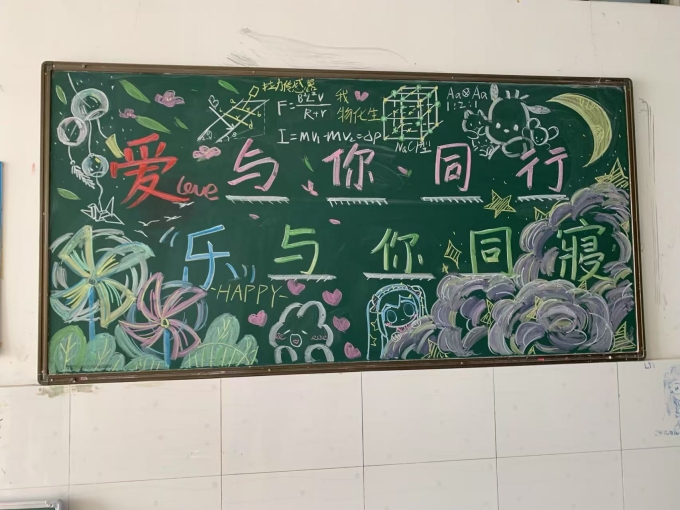 拉力传感器
F=B²L²V/R+r
我❤物化生
I=mv₁-mv₂=Δp
NaCl型
Aa⊗Aa
1:2:1
爱 Love 与你同行
乐 HAPPY 与你同寝